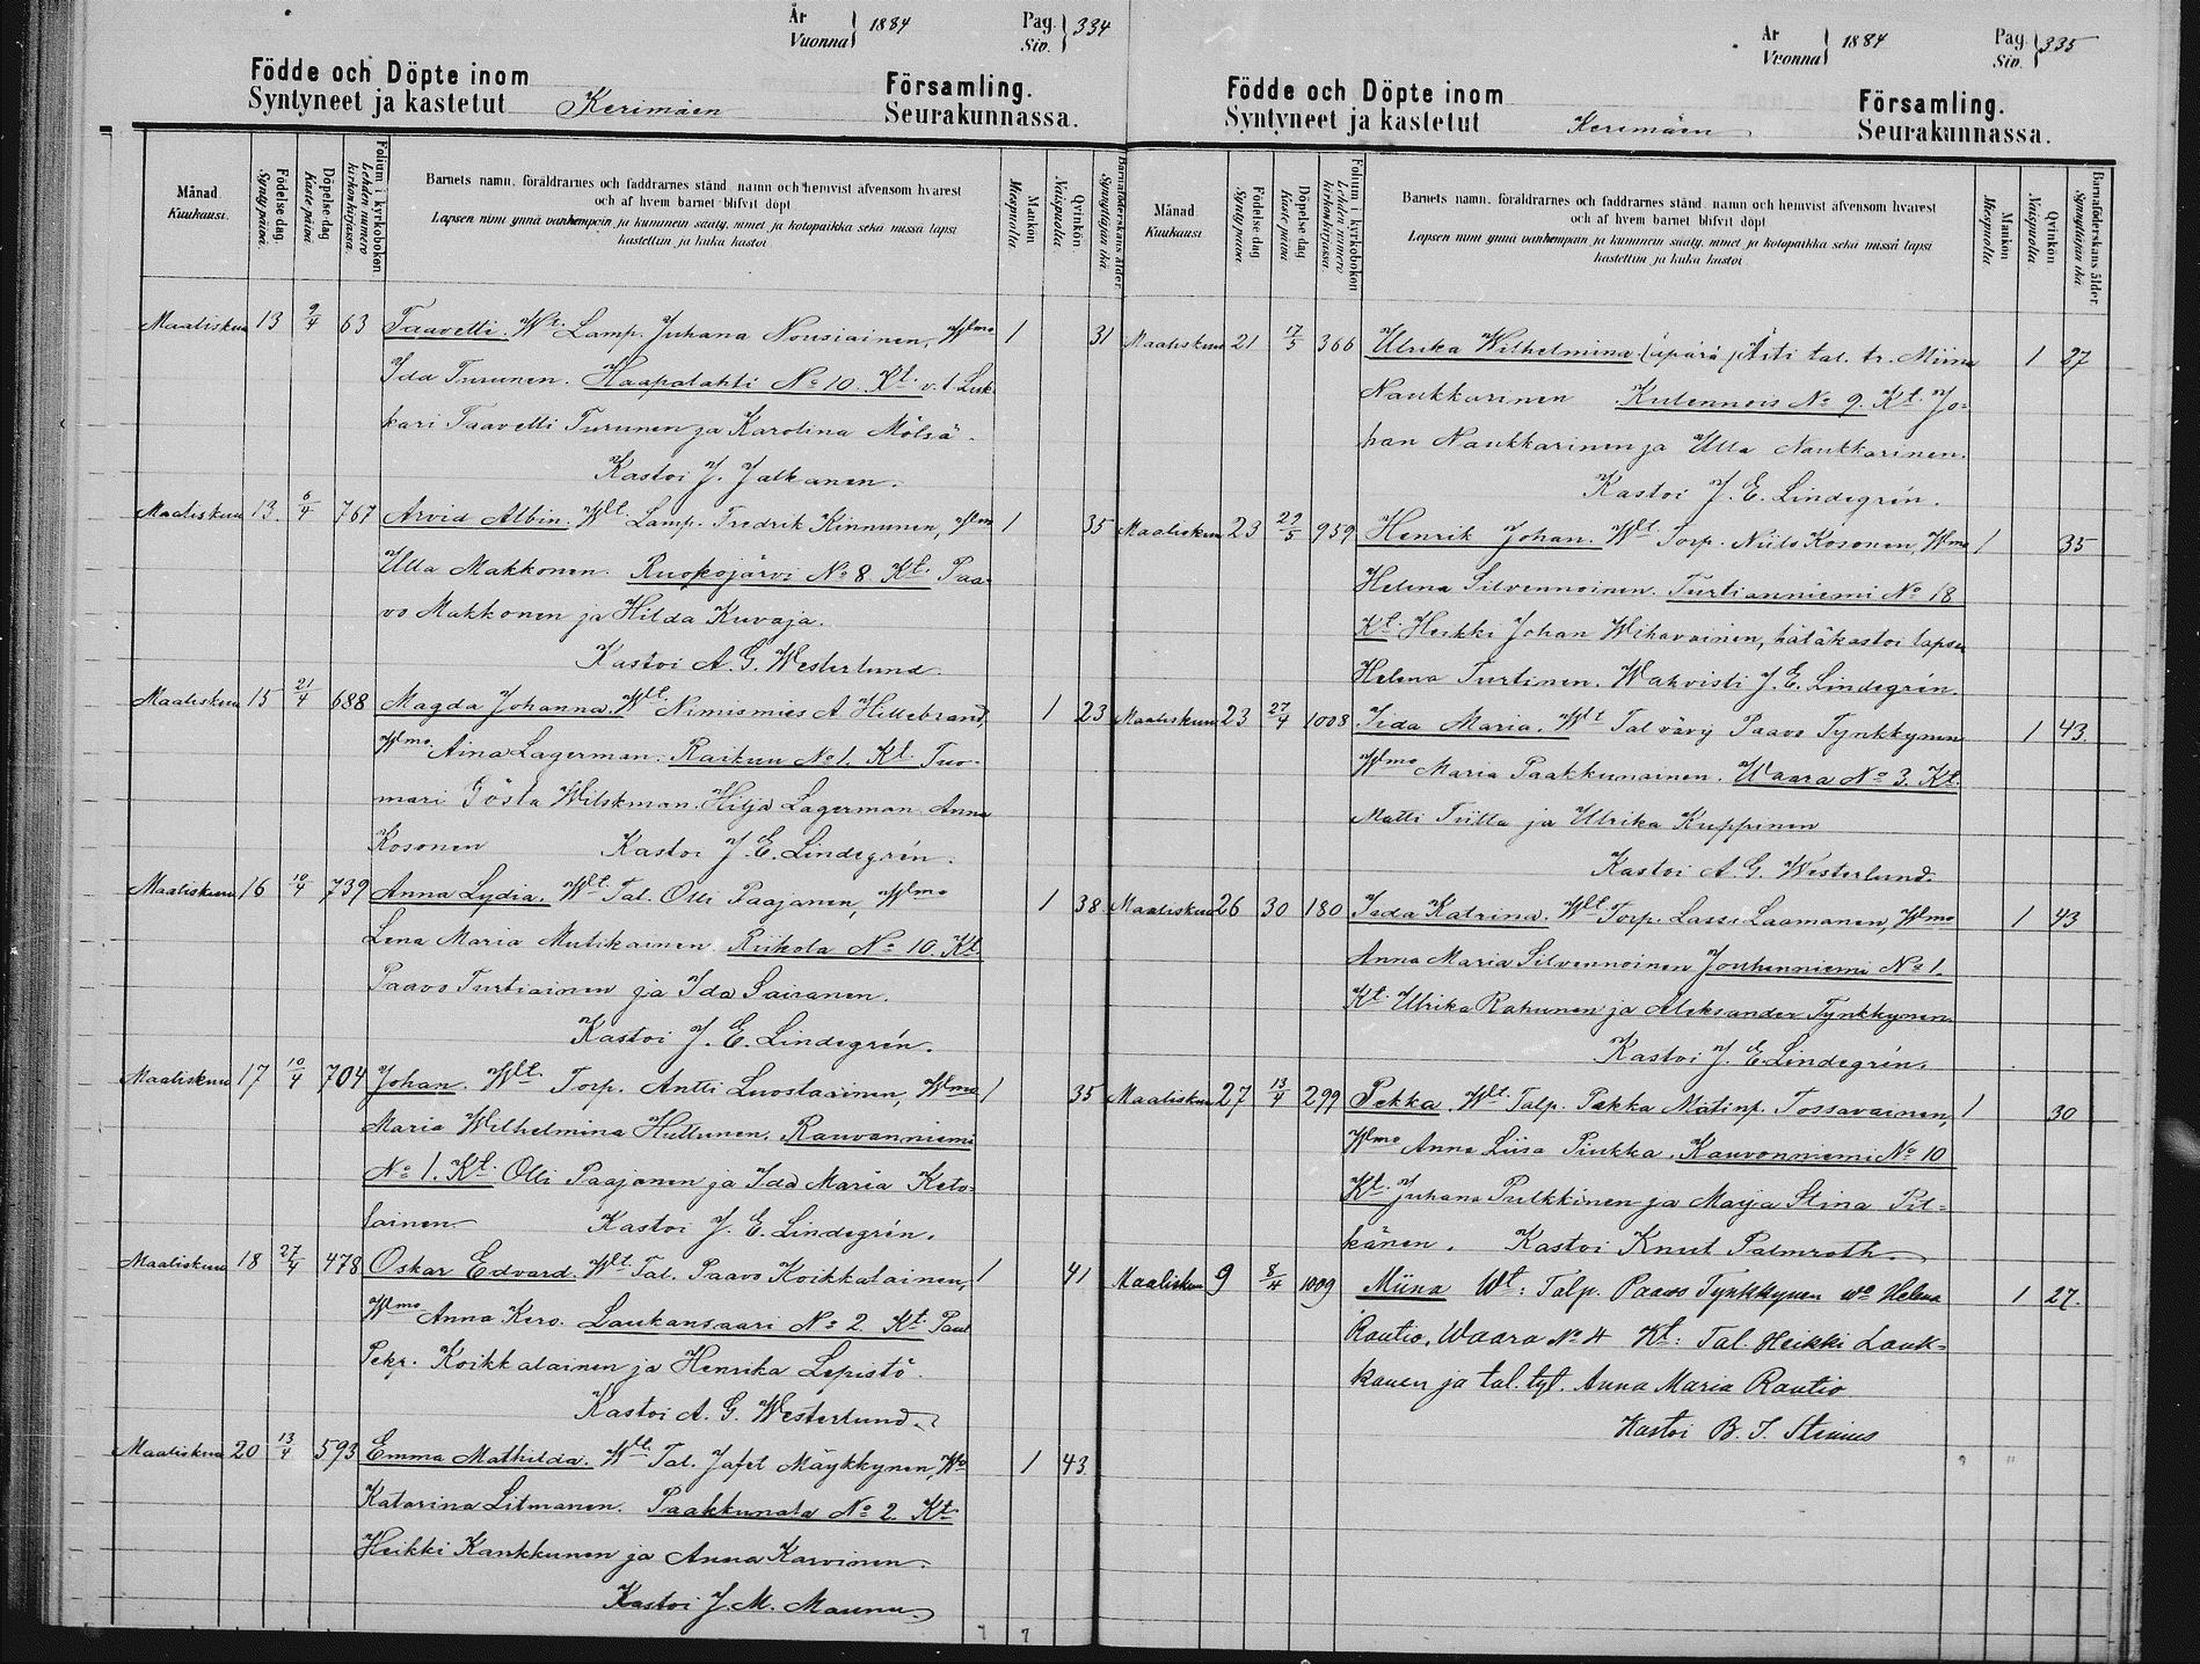 År
Vuonna } 1884
Pag.
Siv. } 334
Födde och Döpte inom
Syntyneet ja kastetut Kerimäen
Församling.
Seurakunnassa.
Månad
Kuukausi.
Födelse dag.
Synty päivä.
Döpelse dag
Kaste päivä.
Folium i kyrkobokon
Lehden numero
kirkonkirjassa.
Barnets namn, föräldrarnes och faddrarnes stånd, namn och hemvist äfvensom hvarest
och af hvem barnet blifvit döpt
Lapsen nimi ynnä vanhempain ja kummein sääty, nimet ja kotopaikka sekä missä lapsi
kastettiin ja kuka kastoi
Mankön
Miespuolia
Qvinkön
Naispuolia.
Barnaföderskans ålder
Synnyttäjän ikä
Maaliskuu 13 9/4 63 Taavetti. Wt. Lamp. Juhana Nousiainen, Wmo 1 31
Ida Turunen. Haapalahti No 10. Kt. v. t. Luk-
kari Taavetti Turunen ja Karolina Mölsä.
Kastoi J. Jalkanen.
Maaliskuu 13. 6/4 767 Arvid Albin. Wt. Lamp. Fredrik Kinnunen, Wmo 1 35
Ulla Makkonen. Ruokojärvi No 8 Kt. Paa-
vo Makkonen ja Hilda Kuvaja.
Kastoi A. G. Westerlund.
Maaliskuu 15 21/4 688 Magda Johanna. Wt. Nimismies A. Hillebrand, 1 23
Wmo. Aina Lagerman. Raikuu No 1. Kt. Tuo-
mari Gösta Wilskman. Hilja Lagerman. Anna
Kosonen Kastoi J. E. Lindegrén.
Maaliskuu 16 10/4 739 Anna Lydia. Wt. Tal. Olli Paajanen, Wmo 1 38
Lena Maria Mutikainen. Riikola No 10. Kt.
Paavo Turtiainen ja Ida Sairanen.
Kastoi J. E. Lindegrén.
Maaliskuu 17 10/4 704 Johan. Wt. Torp. Antti Luostarinen, Wmo 1 35
Maria Wilhelmina Huttunen. Rauvanniemi
No 1. Kt. Olli Paajanen ja Ida Maria Keto-
lainen Kastoi J. E. Lindegrén.
Maaliskuu 18 27/4 478 Oskar Edvard. Wt. Tal. Paavo Koikkalainen, 1 41
Wmo Anna Kero. Laukansaari No 2. Kt. Paul
Pekr. Koikkalainen ja Henrika Lepistö.
Kastoi A. G. Westerlund.
Maaliskuu 20 13/4 593 Emma Mathilda. Wt. Tal. Jafet Mäykkynen, Wo 1 43
Katarina Litmanen. Paakkunala No 2. Kt
Heikki Kankkunen ja Anna Karvinen.
Kastoi J. M. Maunu.
7 7
År
Vuonna } 1884
Pag.
Siv. } 335
Födde och Döpte inom
Syntyneet ja kastetut Kerimäen
Församling.
Seurakunnassa.
Månad
Kuukausi
Födelse dag
Synty päivä
Döpelse dag
Kaste päivä
Folium i kyrkobokon
Lehden numero
kirkonkirjassa
Barnets namn, föräldrarnes och faddrarnes stånd, namn och hemvist äfvensom hvarest
och af hvem barnet blifvit döpt
Lapsen nimi ynnä vanhempain ja kummein sääty, nimet ja kotopaikka sekä missä lapsi
kastettiin ja kuka kastoi
Mankön
Miespuolia
Qvinkön
Naispuolia
Barnaföderskans ålder
Synnyttäjän ikä
Maaliskuu 21 17/5 366 Ulrika Wilhelmina (äpärä) Äiti tal. tr. Miina 1 27
Naukkarinen Kulennois No 9. Kt. Jo-
han Naukkarinen ja Ulla Naukkarinen.
Kastoi J. E. Lindegrén.
Maaliskuu 23 29/5 959 Henrik Johan. Wt. Torp. Niilo Kosonen, Wmo 1 35
Helena Silvennoinen. Turtianniemi No 18
Kt. Heikki Johan Wihavainen, hätäkastoi lapsen
Helena Turtinen. Wahvisti J. E. Lindegrén.
Maaliskuu 23 27/4 1008 Iida Maria. Wt Tal. vävy Paavo Tynkkynen 1 43.
Wmo Maria Paakkunainen. Waara No 3. Kt.
Matti Tiilla ja Ulrika Kuppinen
Kastoi A. G. Westerlund.
Maaliskuu 26 30 180 Iida Katrina. Wt. Torp. Lassi Laamanen, Wmo 1 43
Anna Maria Silvennoinen Jouhenniemi No 1.
Kt. Ulrika Rahunen ja Aleksander Tynkkynen.
Kastoi J. E. Lindegrén.
Maaliskuu 27 13/4 299 Pekka. Wt. Talp. Pekka Matinp. Tossavainen, 1 30
Wmo Anna Liisa Piukka. Kauvonniemi No 10
Kt. Juhana Pulkkinen ja Maija Stina Pit-
känen. Kastoi Knut Palmroth.
Maaliskuu 9 8/4 1009 Miina Wt: Talp. Paavo Tynkkynen Wo Helena 1 27.
Rautio, Waara No 4 Kt: Tal. Heikki Lauk-
kanen ja tal. tyt. Anna Maria Rautio
Kastoi B. I. Stenius